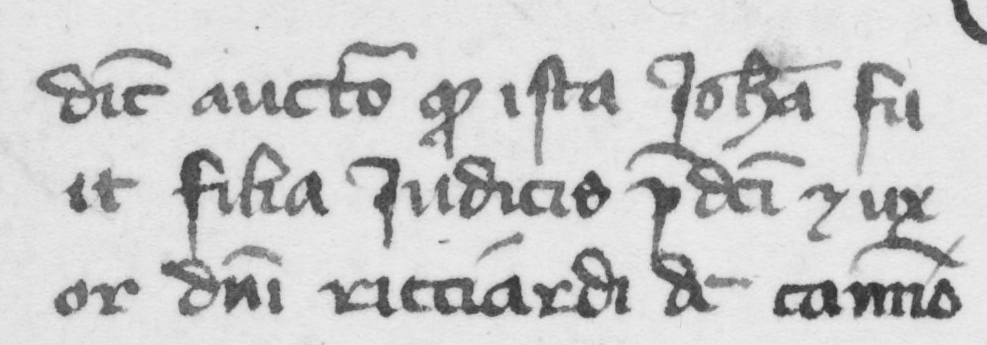 dic̄ aucto᷑ ꝙ ista Joħa᷑ fu
it filia Judicis p̄dc̄i ⁊ ux
or dn̄i ricciardi de camīo